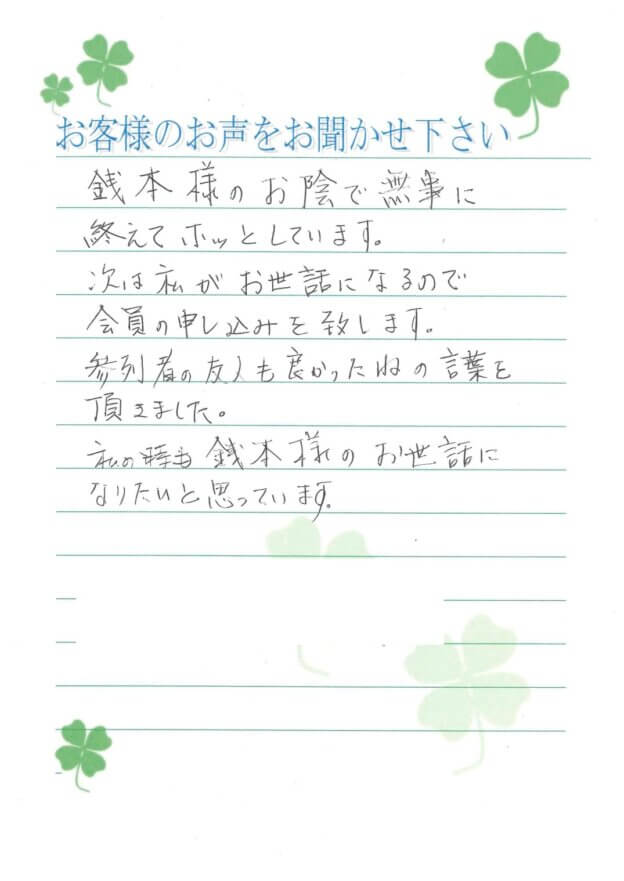 お客様のお声をお聞かせ下さい
銭本様のお陰で無事に
終えてホッとしています。
次は私がお世話になるので
会員の申し込みを致します。
参列者の友人も良かったねの言葉を
頂きました。
私の時も銭本様のお世話に
なりたいと思っています。